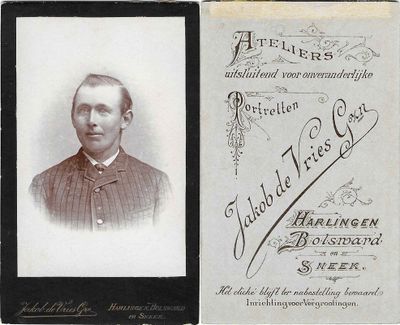 Jakob de Vries Gzn.
HARLINGEN, BOLSWARD
EN SNEEK.
ATELIERS
uitsluitend voor onveranderlijke
Portretten
Jakob de Vries Gzn
HARLINGEN
BOLSWARD
en
SNEEK.
Het cliché blijft ter nabestelling bewaard
Inrichting voor Vergrootingen.